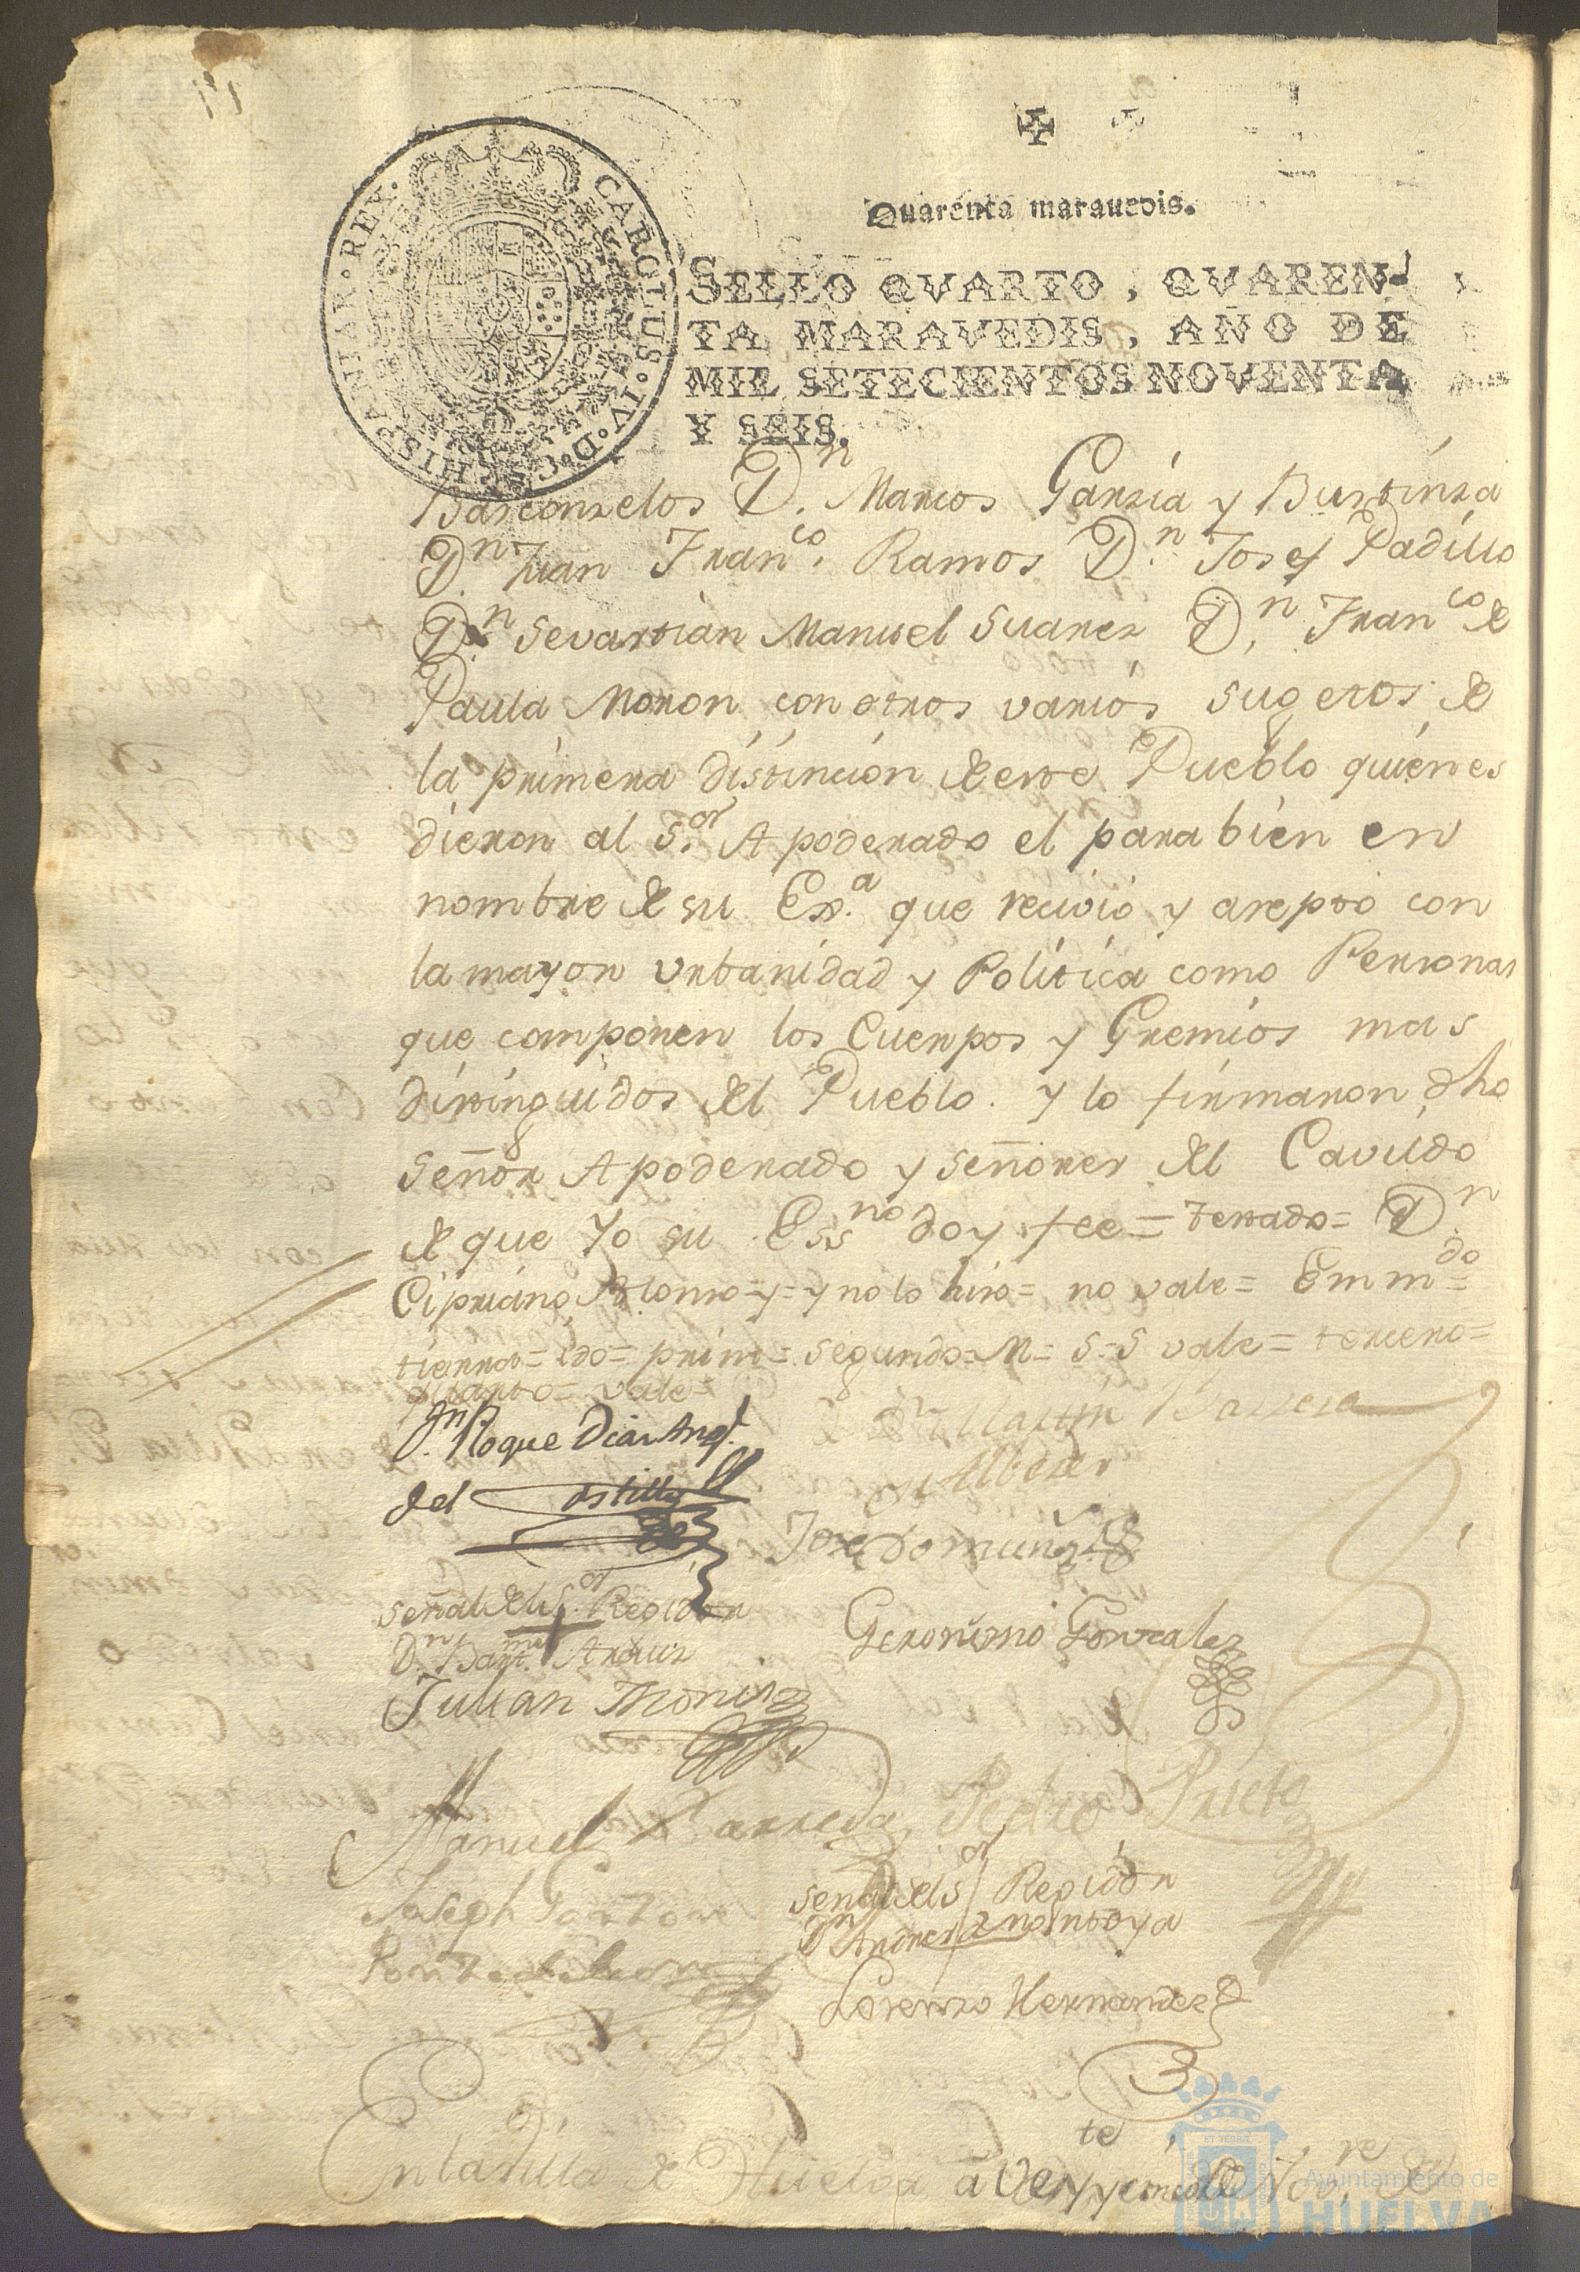 Quarenta marauedis.
CAROLUS·IV·D·G·HISPANIAR·REX·
SELLO QVARTO, QVAREN-
TA MARAVEDIS, AÑO DE
MIL SETECIENTOS NOVENTA
Y SEIS.
Basconzelos Dn. Marcos Garzia y Bustinza
Dn. Juan Franco. Ramos Dn. Josef Padillo
Dn. Sevastian Manuel Suarez Dn. Franco de
Paula Moron con otros varios sugetos de
la primera distincion de este Pueblo quienes
dieron al Sor. Apoderado el parabien en
nombre de su Exa. que recivio y azepto con
la mayor urbanidad y Politica como Personas
que componen los Cuerpos y Gremios mas
distinguidos del Pueblo. y lo firmaron dho
Señor Apoderado y señores del Cavildo
de que Yo su Essno doy fee = testado = Dn.
Cipriano Alonso = y = y no lo hizo = no vale = Emmdo =
= ido = prim = segundo = n = s = s vale = tercero =
quarto = vale =
Dn. Roque Diaz Angl.
del Castillo
Dn Martin Barrera
y Alberes
Jose Domin
señal del Sor. Regidor
Dn. Bartme. Arquiz
Geronimo Gonzalez
Julian Moniz
Manuel Barreda Pedro Prieto
señal del Sor Regidor
Dn Andres de Montoya
Joseph Garzon
Ponze de Leon
Lorenzo Hernandez
En la Villa de Huelva a Veyte y cinco de Novre. de
Ayuntamiento de
HUELVA